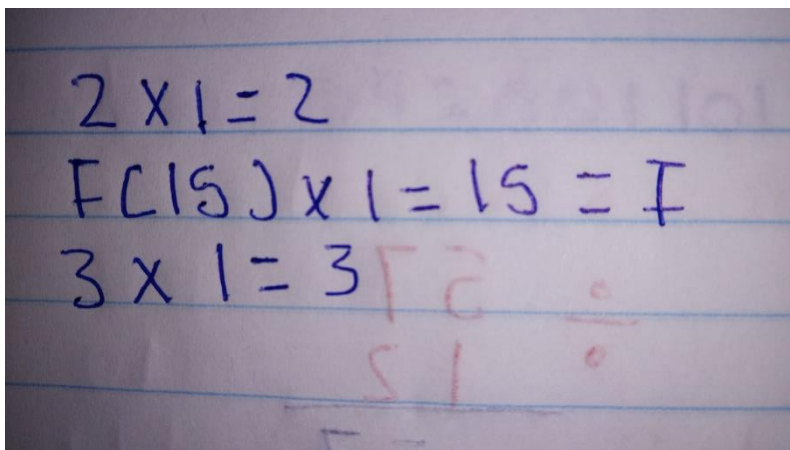 2 x 1 = 2
F(15) x 1 = 15 = F
3 x 1 = 3